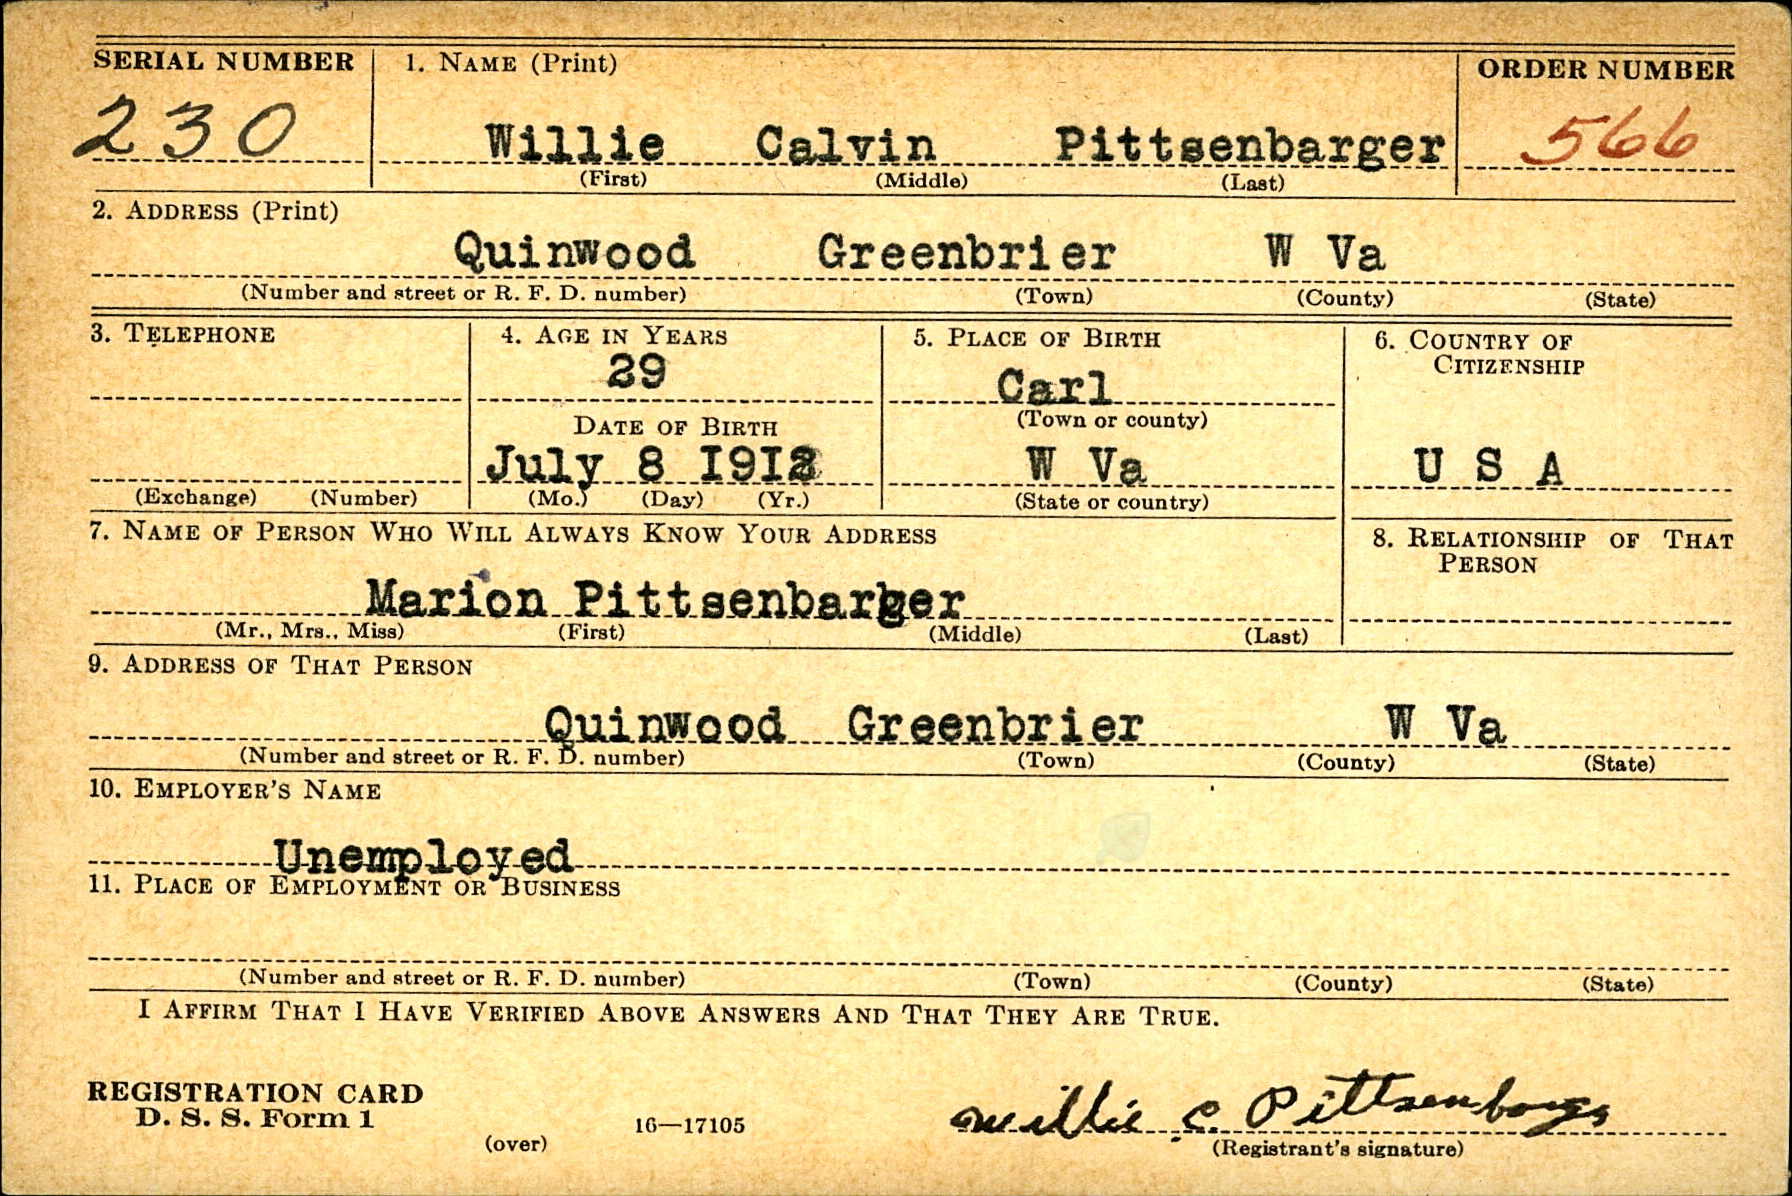 SERIAL NUMBER
1. NAME (Print)
ORDER NUMBER
230
Willie Calvin Pittsenbarger
566
(First) (Middle) (Last)
2. ADDRESS (Print)
Quinwood Greenbrier W Va
(Number and street or R. F. D. number) (Town) (County) (State)
3. TELEPHONE
4. AGE IN YEARS
29
5. PLACE OF BIRTH
Carl
(Town or county)
6. COUNTRY OF
CITIZENSHIP
DATE OF BIRTH
July 8 1912
W Va
U S A
(Exchange) (Number)
(Mo.) (Day) (Yr.)
(State or country)
7. NAME OF PERSON WHO WILL ALWAYS KNOW YOUR ADDRESS
8. RELATIONSHIP OF THAT
PERSON
Marion Pittsenbarger
(Mr., Mrs., Miss) (First) (Middle) (Last)
9. ADDRESS OF THAT PERSON
Quinwood Greenbrier W Va
(Number and street or R. F. D. number) (Town) (County) (State)
10. EMPLOYER'S NAME
Unemployed
11. PLACE OF EMPLOYMENT OR BUSINESS
(Number and street or R. F. D. number) (Town) (County) (State)
I AFFIRM THAT I HAVE VERIFIED ABOVE ANSWERS AND THAT THEY ARE TRUE.
REGISTRATION CARD
D. S. S. Form 1
(over)
16—17105
Willie C. Pittsenbarger
(Registrant's signature)